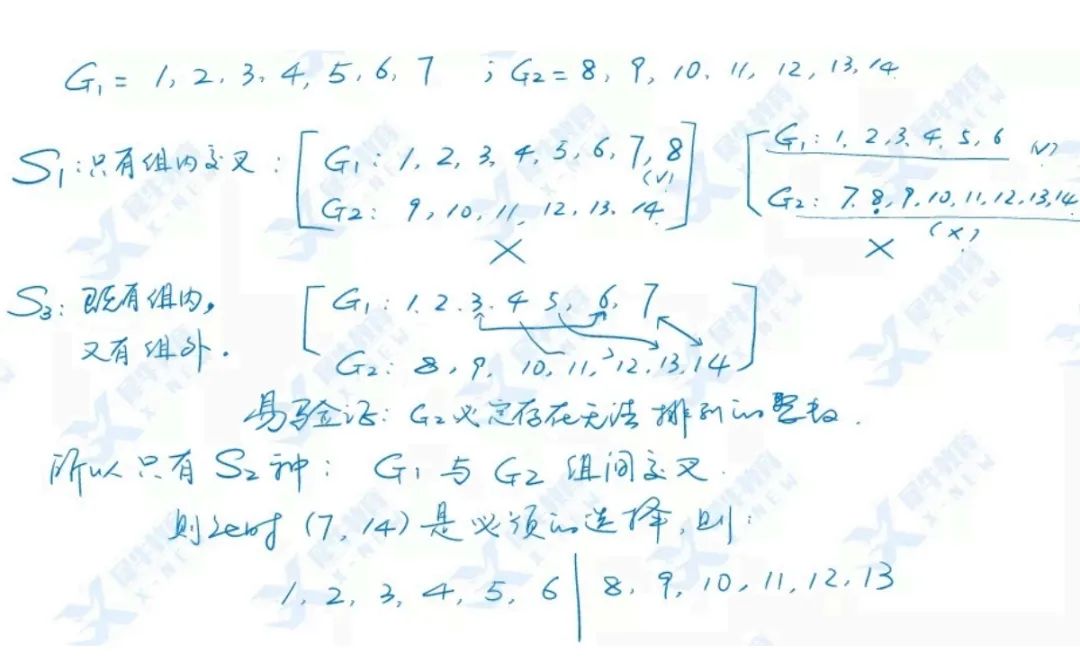 G₁ = 1, 2, 3, 4, 5, 6, 7 ; G₂ = 8, 9, 10, 11, 12, 13, 14
S₁: 只有组内交叉: [ G₁: 1, 2, 3, 4, 5, 6, 7, 8 (√) [ G₁: 1, 2, 3, 4, 5, 6 (√)
G₂: 9, 10, 11, 12, 13, 14 ] G₂: 7, 8, 9, 10, 11, 12, 13, 14
× × (×)
S₃: 既有组内, [ G₁: 1, 2, 3, 4, 5, 6, 7 ]
又有组外. G₂: 8, 9, 10, 11, 12, 13, 14
易验证: G₂必定存在无法排列的整数.
所以只有S₂种: G₁与G₂组间交叉.
则 (7, 14) 是必须的选择, 则:
1, 2, 3, 4, 5, 6 | 8, 9, 10, 11, 12, 13
犀牛教育
X-NEW